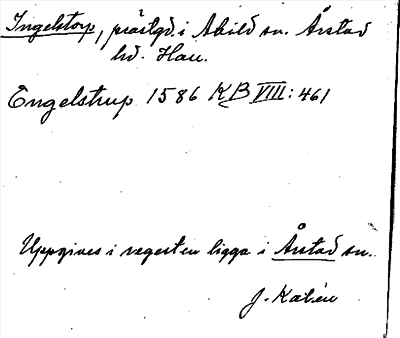 Ingelstorp, prästgd. i Abild sn. Årstad
hd. Hall.
Engelstrup 1586 KB VIII: 461
Uppgives i regesten ligga i Årstad sn.
J. Kalén